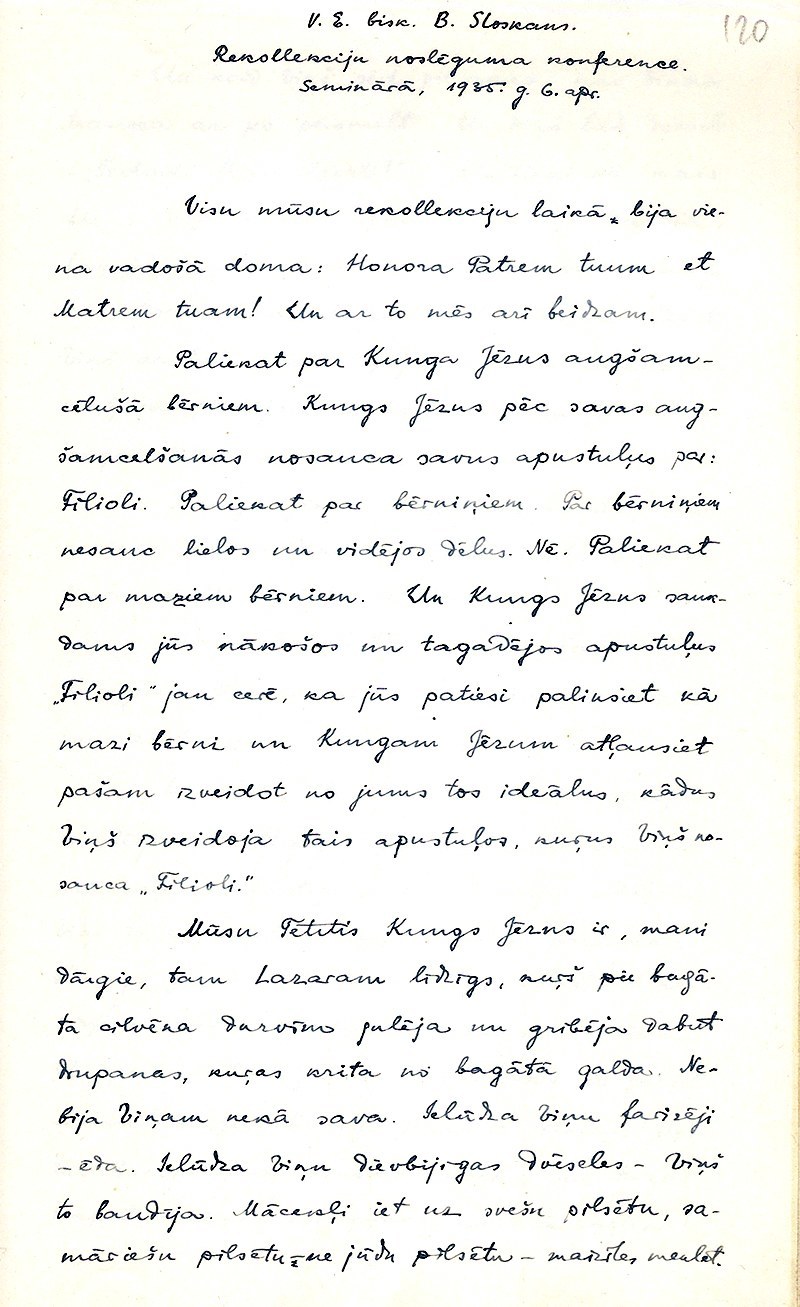 120
V. E. bisk. B. Sloskans.
Rekollekciju noslēguma konference.
Seminārā, 1935. g. 6. apr.
Visu mūsu rekollekciju laikā bija vie-
na vadošā doma: Honora Patrem tuum et
Matrem tuam! Un ar to mēs arī beidzam.
Paliekat par Kunga Jēzus augšam-
cēlušā bērniem. Kungs Jēzus pēc savas aug-
šamcelšanās nosauca savus apustuļus par:
Filioli. Paliekat par bērniņiem. Par bērniņiem
nesauc lielos un vidējos dēlus. Nē. Paliekat
par maziem bērniem. Un Kungs Jēzus sauk-
dams jūs nākošos un tagadējos apustuļus
„Filioli" jau cerē, ka jūs patiesi paliksiet kā
mazi bērni un Kungam Jēzum atļausiet
pašam izveidot no jums tos ideālus, kādus
Viņš izveidoja tais apustuļos, kuŗus Viņš no-
sauca „Filioli."
Mūsu Tētītis Kungs Jēzus ir, mani
dārgie, tam Lazaram līdzīgs, kuŗš pie bagā-
ta cilvēka durvīm gulēja un gribēja dabūt
drupanas, kuŗas krita no bagātā galda. Ne-
bija Viņam nekā sava. Ielūdza Viņu farizēji
– ēda. Ielūdza Viņu dievbijīgas dvēseles – Viņš
to baudīja. Mācekļi iet uz svešu pilsētu, sa-
māriešu pilsētu – ne jūdu pilsētu – maizītes meklēt.